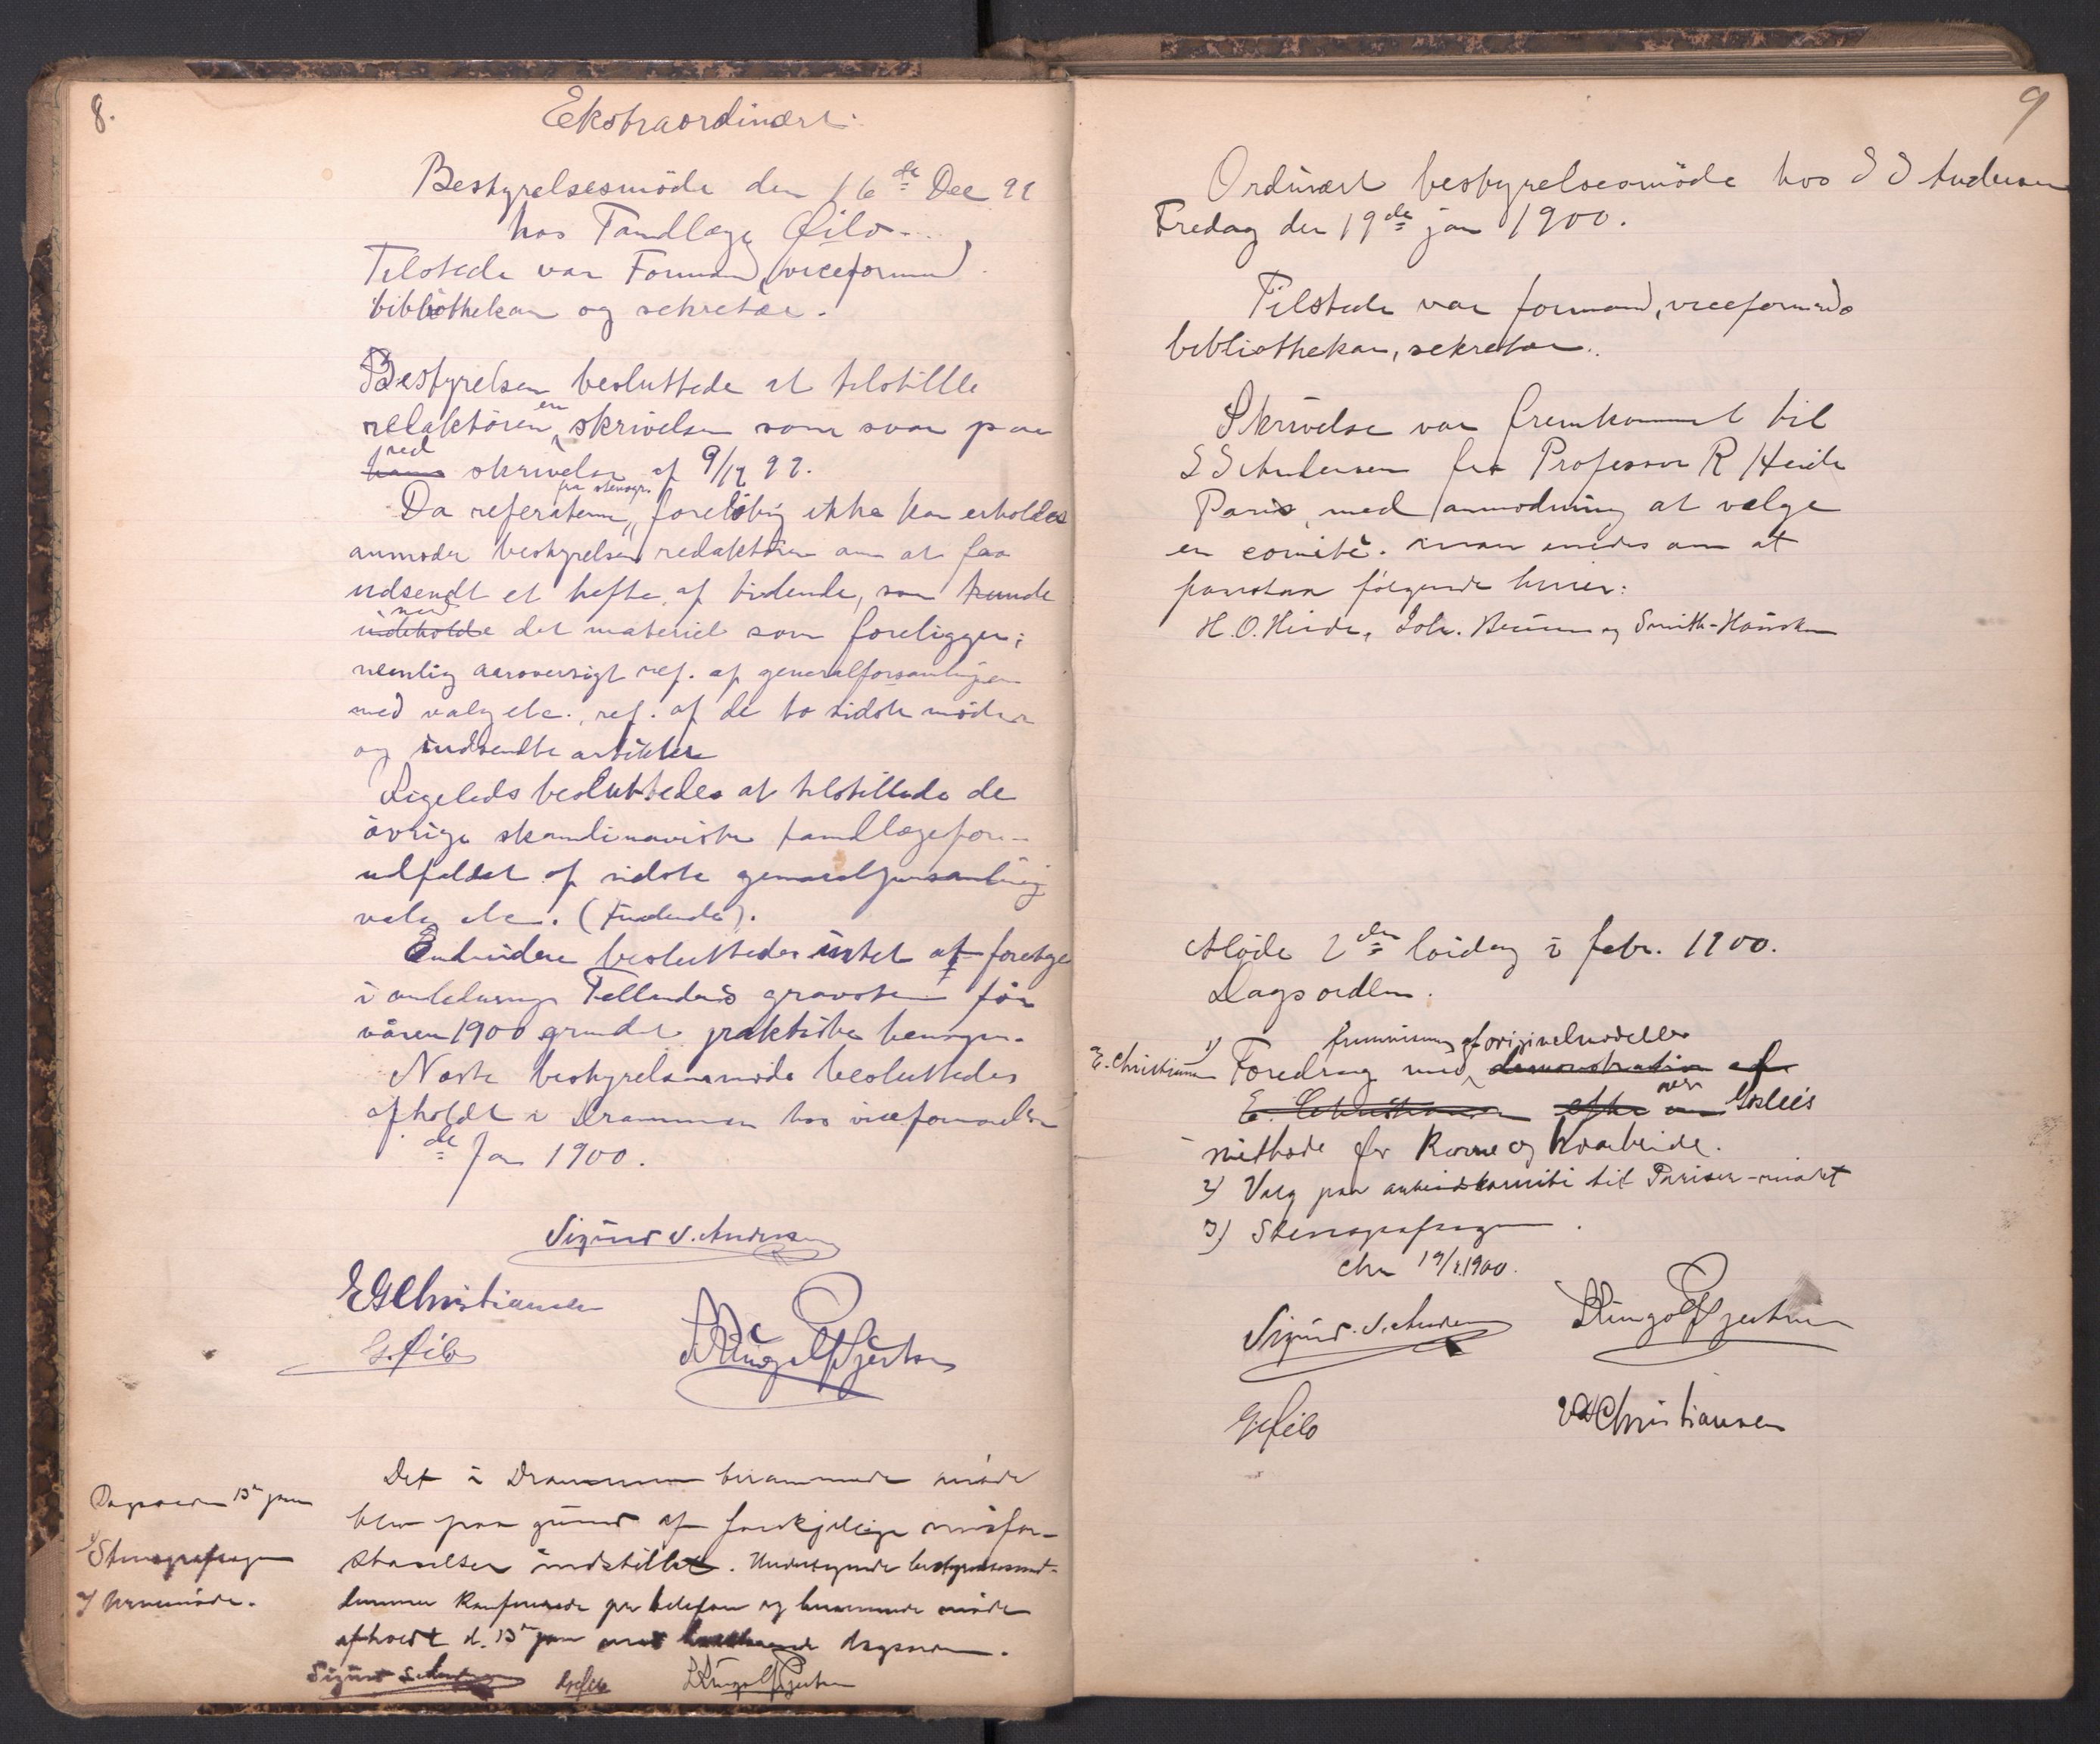 8.
Ekstraordinært
Bestyrelsesmöde den 16de Dec 99
hos Tandlæge Qvilo
Tilstede var Formand, viceformand
bibliothekar og sekretær.
Bestyrelsen besluttede at tilstille
redaktören en skrivelse som svar paa
red
hans skrivelse af 9/12 99.
fra stenogr.
Da referaterne foreløbig ikke kan erholdes
anmoder bestyrelsen redaktören om at faa
udsendt et hefte af tidende, som kunde
med
indeholde det materiel som foreligger;
nemlig aarsoversigt ref. af generalforsamlingen
med valg etc., ref. af de to sidste möder
og indsendte artikler
Ligeledes besluttedes at tilstillede de
övrige skandinaviske tandlægefore-
udfaldet af sidste generalforsamling
valg etc. (Tidende).
Endvidere besluttedes intet at foretage
i anledning Tellanders gravsten för
våren 1900 grundet praktiske hensyn.
Næste bestyrelsesmöde besluttedes
afholdt i Drammen hos viceformanden
de Jan 1900.
Sigurd S. Andersen
EG Christiansen
Det i Drammen berammede möde
blev paa grund af forskjellige misfor-
staaelser indstillet. Undertegnede bestyrelsesmed-
lemmer konfererede per telefon og berammede möde
afholdt d. 13de jan med hosstaaende dagsorden.
Dagsorden 13de jan
1) Stenografsagen
2) Vennemöde.
Sigurd S. Andersen
9
Ordinært bestyrelsesmöde hos S S Andersen
Fredag den 19de jan 1900.
Tilstede var formand, viceformand
bibliothekar, sekretær.
Skrivelse var fremkommet til
S S Andersen fra Professor R Heide
Paris, med anmodning at vælge
en comité. man enedes om at
foreslaa fölgende herrer:
H. O. Heide, Joh. Bruun og Smith-Housken
Möde 2den lördag i febr. 1900.
Dagsorden.
fremvisning af originalmodeller
E. Christiansen 1) Foredrag med demonstration af
E. Christiansen efter over Goslees
methode for Krone og broarbeide.
2) Valg paa arbeidskomité til Pariser-mödet
3) Stenografsagen.
Chra 19/1.1900.
Sigurd S. Andersen
EG Christiansen